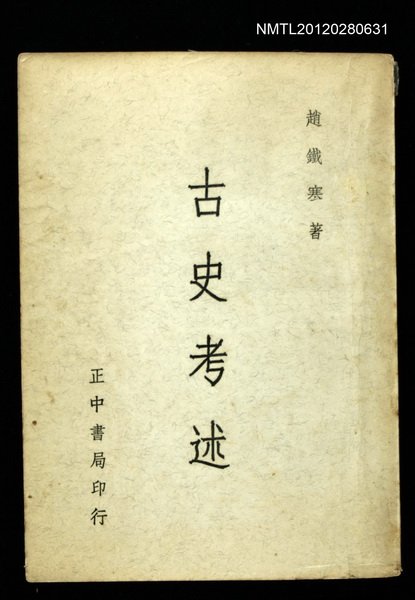 NMTL20120280631
趙鐵寒著
古史考述
正中書局印行